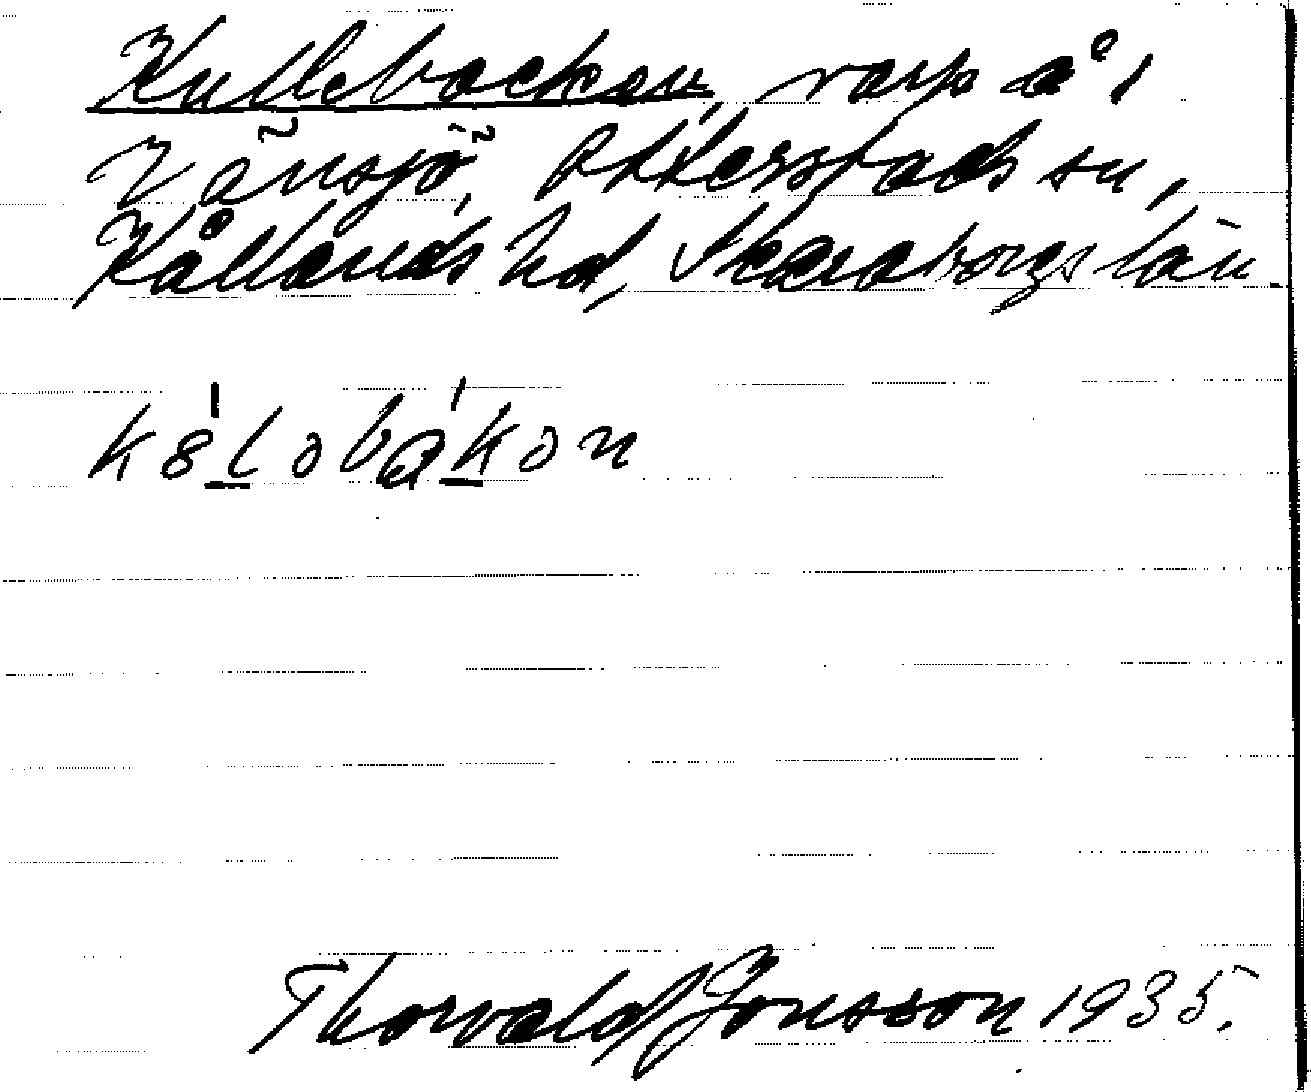 Kullebacken, varp å i
Vänsjö, Otterstads sn,
Kållands hd, Skaraborgs län.
k8'l̲əbɑ'k̲ən
Thorvald Jonsson 1935.